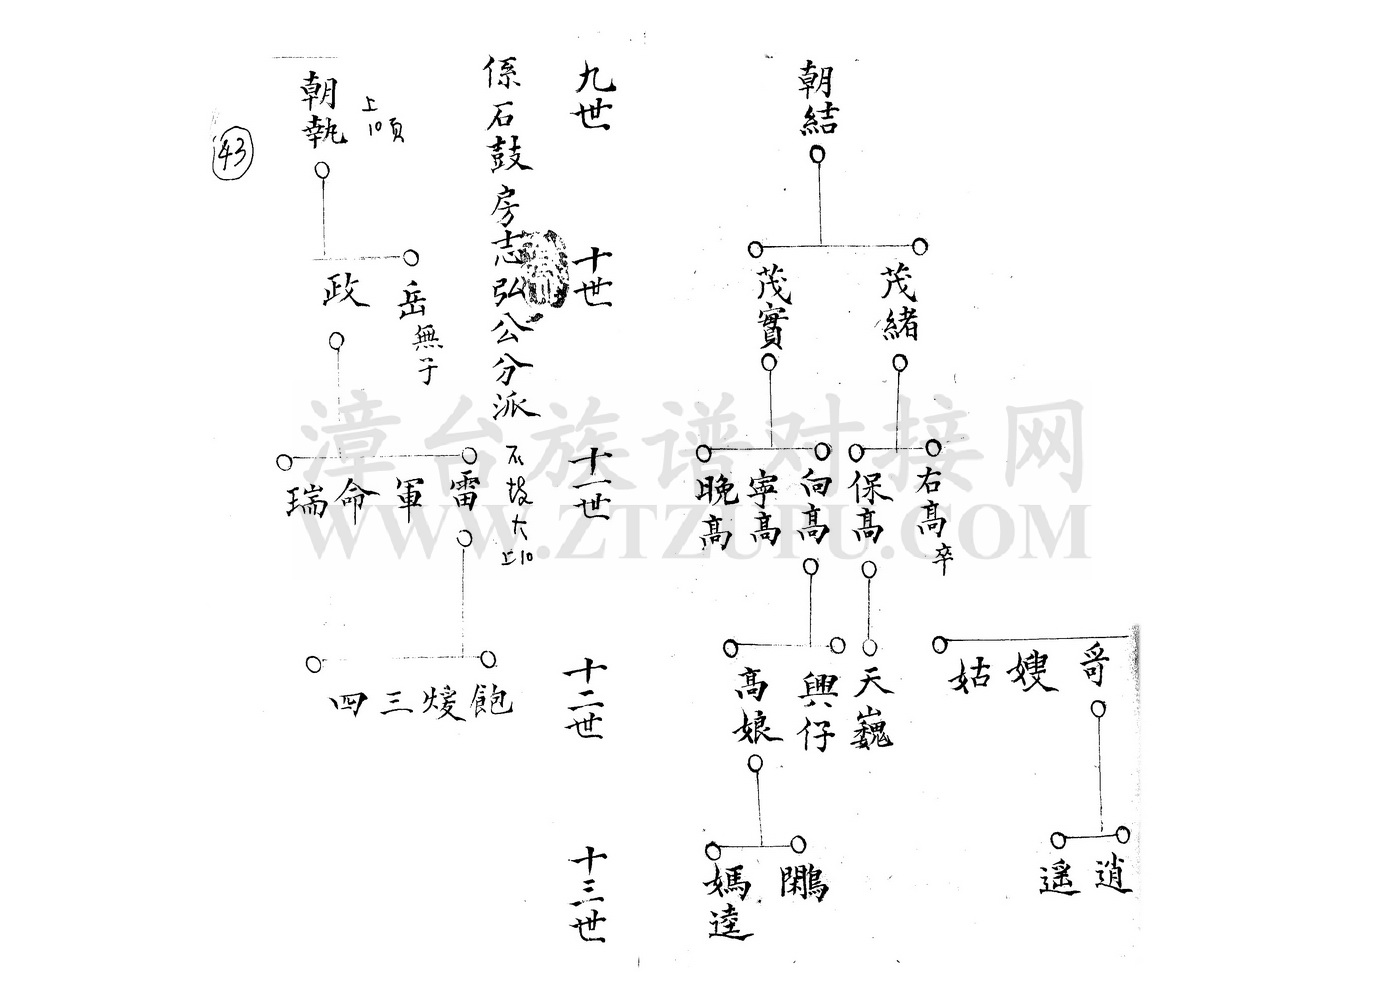 朝結
茂緒
茂實
右高卒
保高
向高
寧高
晚高
哥
嫂
姑
天巍
興仔
高娘
逍
遥
鵬
媽逵
九世
十世
十一世
十二世
十三世
係石鼓房志弘公分派
上10頁
朝執
岳無子
政
雷
軍
命
瑞
飽
煖
三
四
43
漳台族谱对接网
WWW.ZTZUPU.COM